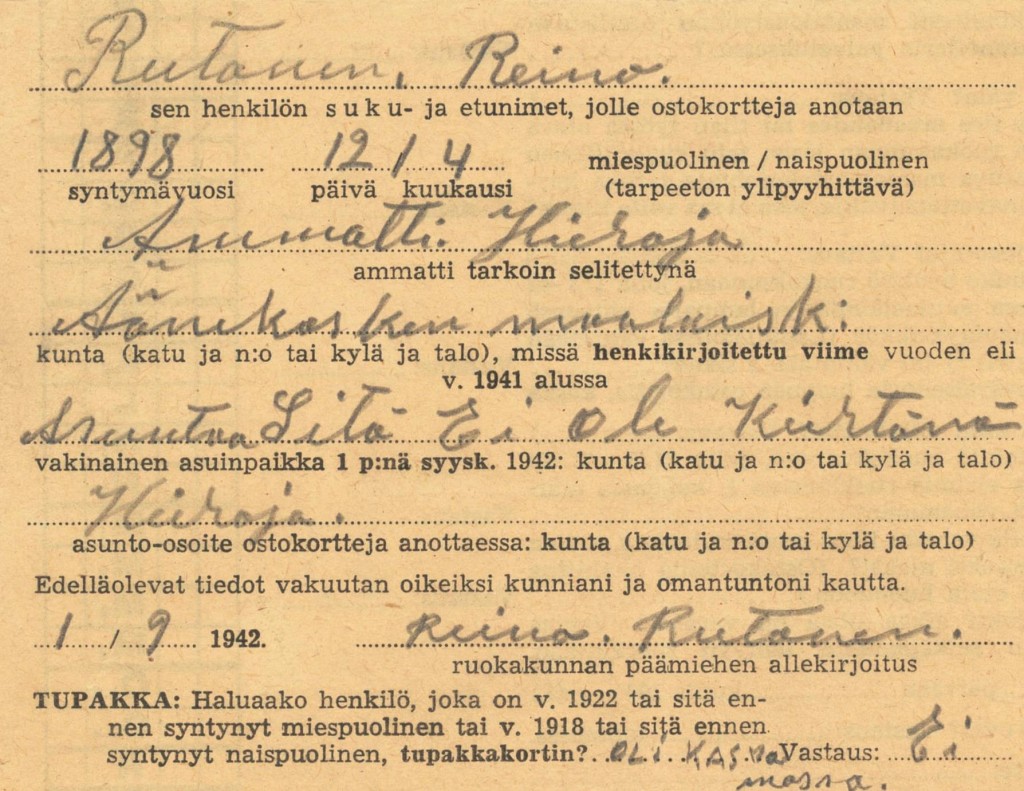 Rutanen, Reino.
sen henkilön suku- ja etunimet, jolle ostokortteja anotaan
1898 12 / 4 miespuolinen / naispuolinen
syntymävuosi päivä kuukausi (tarpeeton ylipyyhittävä)
Ammatti. Hieroja
ammatti tarkoin selitettynä
Äänekosken maalaisk:
kunta (katu ja n:o tai kylä ja talo), missä henkikirjoitettu viime vuoden eli
v. 1941 alussa
Asuntoa Sitä Ei Ole Kiertänä
vakinainen asuinpaikka 1 p:nä syysk. 1942: kunta (katu ja n:o tai kylä ja talo)
Hieroja.
asunto-osoite ostokortteja anottaessa: kunta (katu ja n:o tai kylä ja talo)
Edelläolevat tiedot vakuutan oikeiksi kunniani ja omantuntoni kautta.
1 / 9 1942. Reino. Rutanen.
ruokakunnan päämiehen allekirjoitus
TUPAKKA: Haluaako henkilö, joka on v. 1922 tai sitä en-
nen syntynyt miespuolinen tai v. 1918 tai sitä ennen
syntynyt naispuolinen, tupakkakortin? OLI Vastaus: Ei
massa.